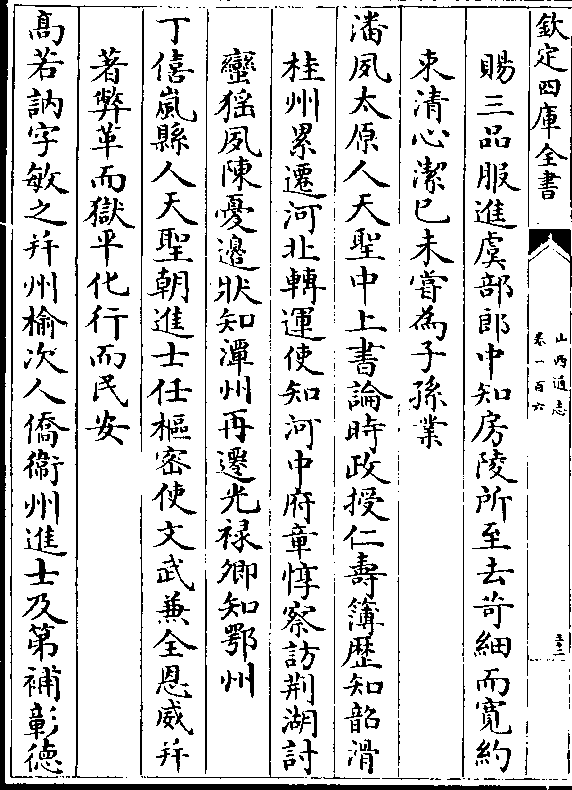 欽定四庫全書
山西通志
卷一百六
賜三品服進虞部郎中知房陵所至去苛細而寛約
束清心潔已未嘗為子孫業
潘夙太原人天聖中上書論時政授仁壽簿歴知韶滑
桂州累遷河北轉運使知河中府章惇察訪荆湖討
蠻猺夙陳憂邊狀知潭州再遷光禄卿知鄂州
丁僖嵐縣人天聖朝進士任樞密使文武兼全恩威并
著弊革而獄平化行而民安
髙若訥字敏之并州榆次人僑衞州進士及第補彰德